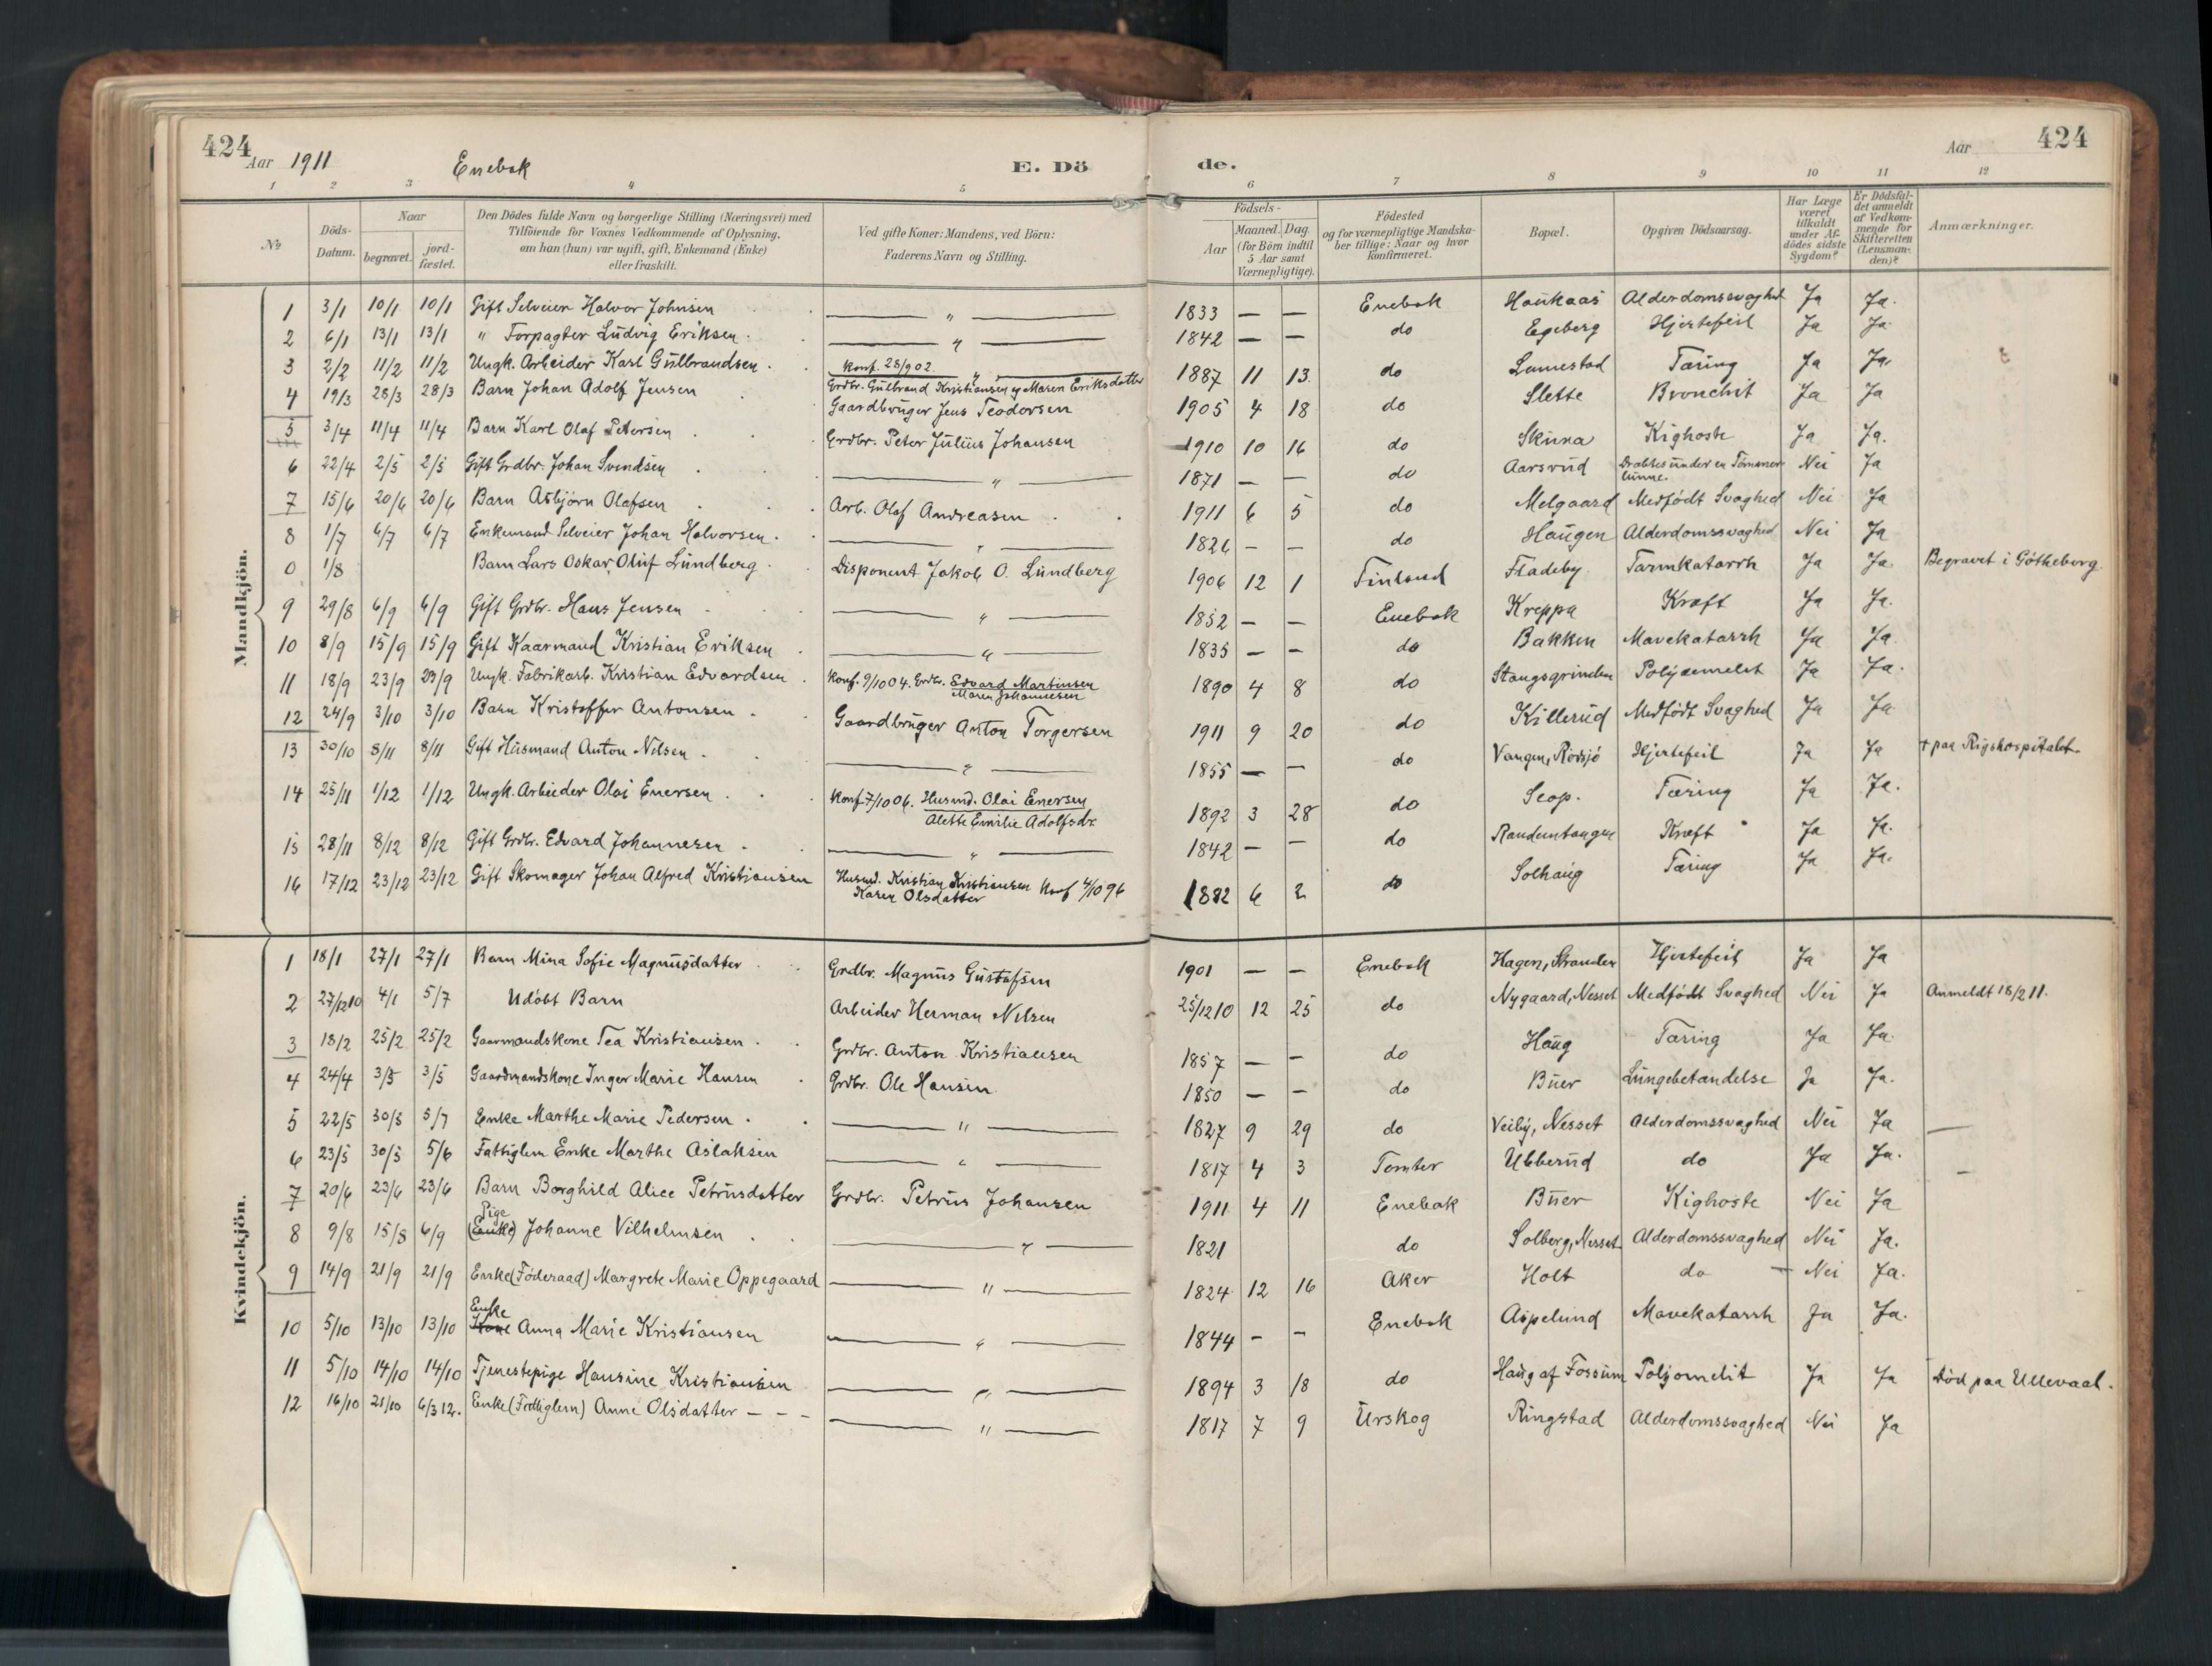 424
Aar 1911
Enebak
E. Dö de.
Aar
424
1 2 3 4 5 6 7 8 9 10 11 12
No
Döds-Datum.
Naar
begravet.
jord-fæstet.
Den Dödes fulde Navn og borgerlige Stilling (Næringsvei) med
Tilföiende for Voxnes Vedkommende af Oplysning,
om han (hun) var ugift, gift, Enkemand (Enke)
eller fraskilt.
Ved gifte Koner: Mandens, ved Börn:
Faderens Navn og Stilling.
Födsels-
Aar
Maaned. Dag.
(for Börn indtil
5 Aar samt
Værnepligtige).
Födested
og for værnepligtige Mandska-
ber tillige: Naar og hvor
konfirmeret.
Bopæl.
Opgiven Dödsaarsag.
Har Læge
været
tilkaldt
under Af-
dödes sidste
Sygdom?
Er Dödsfal-
det anmeldt
af Vedkom-
mende for
Skifteretten
(Lensman-
den)?
Anmærkninger.
Mandkjön.
1 3/1 10/1 10/1 Gift Selveier Halvor Johnsen — " — 1833 — — Enebak Haukaas Alderdomssvaghed Ja Ja.
2 6/1 13/1 13/1 " Forpagter Ludvig Eriksen — " — 1842 — — do Egeberg Hjertefeil Ja Ja
3 2/2 11/2 11/2 Ungk. Arbeider Karl Gulbrandsen Konf. 28/9 02. Grdbr. Gulbrand Kristiansen og Maren Eriksdatter 1887 11 13 do Tæring Ja Ja.
4 19/3 28/3 28/3 Barn Johan Adolf Jensen Gaardbruger Jens Teodorsen 1905 4 18 do Slette Bronchit Ja Ja
5 3/4 11/4 11/4 Barn Karl Olaf Petersen Grdbr. Peter Julius Johansen 1910 10 16 do Kighoste Ja Ja.
6 22/4 2/5 2/5 Gift Grdbr. Johan Svendsen — " — 1871 — — do Aarsrud Dræbtes under en Tömmerlunne. Nei Ja
7 15/6 20/6 20/6 Barn Asbjörn Olafsen Arb. Olaf Andreasen 1911 6 5 do Melgaard Medfödt Svaghed Nei Ja
8 1/7 6/7 6/7 Enkemand Selveier Johan Halvorsen — " — 1826 — — do Haugen Alderdomssvaghed Nei Ja
0 1/8 Barn Lars Oskar Oluf Lundberg Disponent Jakob O. Lundberg 1906 12 1 Finland Fladeby Tarmkatarrh Ja Ja Begravet i Götheborg
9 29/8 6/9 6/9 Gift Grdbr. Hans Jensen — " — 1852 — — Enebak Kreppa Kræft Ja Ja.
10 8/9 15/9 15/9 Gift Kaarmand Kristian Eriksen — " — 1835 — — do Bakken Mavekatarrh Ja Ja
11 18/9 23/9 23/9 Ungk. Fabrikarb. Kristian Edvardsen Konf. 9/10 04. Grdbr. Edvard Martinsen Maren Johannesen 1890 4 8 do Stangsgrinden Ja Ja.
12 24/9 3/10 3/10 Barn Kristoffer Antonsen Gaardbruger Anton Torgersen 1911 9 20 do Killerud Medfödt Svaghed Ja Ja
13 30/10 8/11 8/11 Gift Husmand Anton Nilsen — " — 1855 — — do Vangen, Hjertefeil Ja Ja + paa Rigshospitalet.
14 25/11 1/12 1/12 Ungk. Arbeider Olai Enersen Konf. 7/10 06. Husmd. Olai Enersen Alette Emilie Adolfsdr. 1892 3 28 do Scop. Tæring Ja Ja.
15 28/11 8/12 8/12 Gift Grdbr. Edvard Johannesen — " — 1842 — — do Kræft Ja Ja.
16 17/12 23/12 23/12 Gift Skomager Johan Alfred Kristiansen Husmd. Kristian Kristiansen Karen Olsdatter Konf 4/10 96 1882 6 2 do Solhaug Tæring Ja Ja.
Kvindekjön.
1 18/1 27/1 27/1 Barn Mina Sofie Magnusdatter Grdbr. Magnus Gustafsen 1901 — — Enebak Hagen, Stranden Hjertefeil Ja Ja
2 27/12 10 4/1 5/7 Udöbt Barn Arbeider Herman Nilsen 25/12 10 12 25 do Nygaard, Nesset Medfödt Svaghed Nei Ja Anmeldt 18/2 11.
3 18/2 25/2 25/2 Gaarmandskone Tea Kristiansen Grdbr. Anton Kristiansen 1857 — — do Haug Tæring Ja Ja
4 24/4 3/5 3/5 Gaardmandskone Inger Marie Hansen Grdbr. Ole Hansen 1850 — — do Buer Lungebetændelse Ja Ja.
5 22/5 30/5 5/7 Enke Marthe Marie Pedersen — " — 1827 9 29 do Veiby, Nesset Alderdomssvaghed Nei Ja —
6 23/5 30/5 5/6 Fattiglem Enke Marthe Aslaksen — " — 1817 4 3 Tomter Ubberud do Ja Ja. —
7 20/6 23/6 23/6 Barn Borghild Alice Petrusdatter Grdbr. Petrus Johansen 1911 4 11 Enebak Buer Kighoste Nei Ja
8 9/8 15/8 6/9 Pige (Enke) Johanne Vilhelmsen — " — 1821 do Solberg, Nesset Alderdomssvaghed Nei Ja.
9 14/9 21/9 21/9 Enke (Föderaad) Margrete Marie Oppegaard — " — 1824 12 16 Aker Holt do — Nei Ja.
10 5/10 13/10 13/10 Enke Kone Anna Marie Kristiansen — " — 1844 — — Enebak Aspelund Mavekatarrh Ja Ja.
11 5/10 14/10 14/10 Tjenestepige Hansine Kristiansen — " — 1894 3 18 do Haug af Fossum Ja Ja Död paa Ullevaal.
12 16/10 21/10 6/3 12. Enke (Fattiglem) Anne Olsdatter — " — 1817 7 9 Urskog Ringstad Alderdomssvaghed Nei Ja